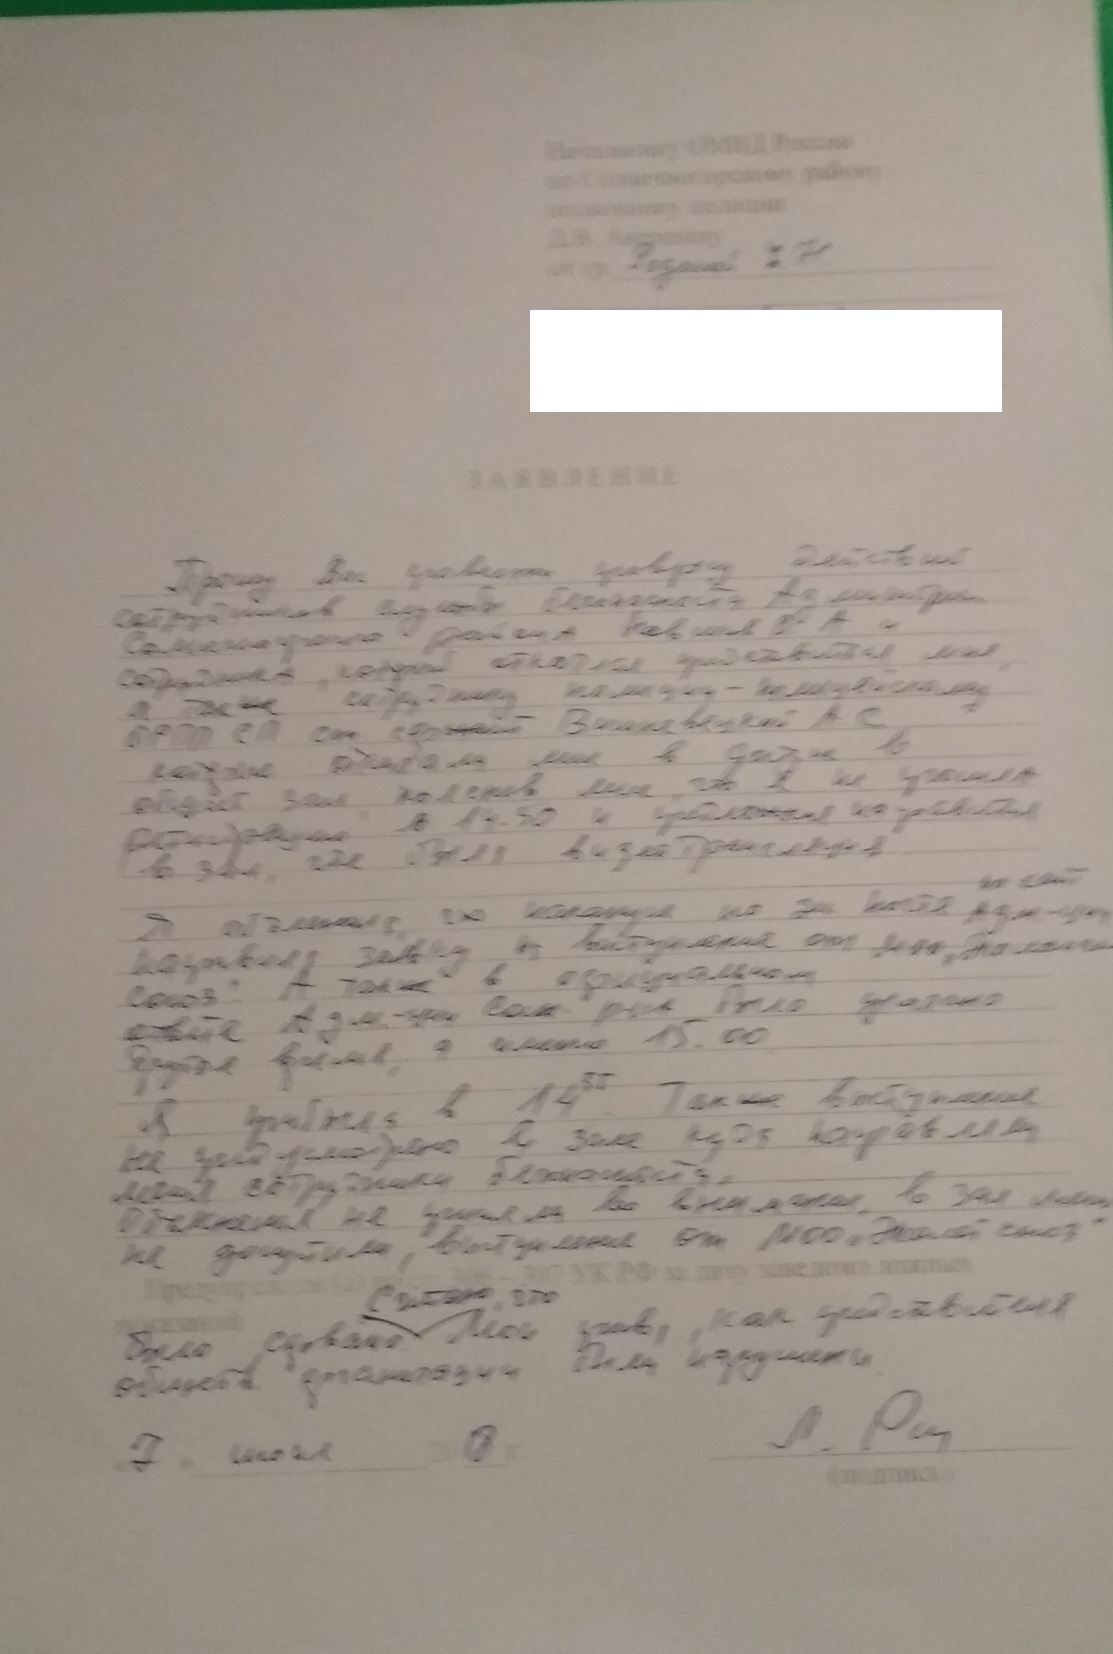 Начальнику ОМВД России
по Солнечногорскому району
полковнику полиции
Д.В.
от гр.
ЗАЯВЛЕНИЕ
Прошу Вас провести проверку действий
сотрудников службы безопасности Администрации
Солнечногорского района А и
сотрудника, который отказался представится мне,
а также сотруднику полиции - полицейскому
ОРППСП А С
которые отказали мне в допуске в
общий зал, пояснив мне, что я не прошла
регистрацию в 14-30 и направится
в зал, где была видеотрансляция.
Я объяснила, что накануне по эл почте на сайт Адм-ции
направила заявку на выступление от МОО "Экологич
союз" А также в официальном
ответе Адм-ции Солн. р-на было указано
другое время, а именно 15.00
Я прибыла в 14 55. Также выступление
не предусмотрено в зале куда направляли
меня сотрудники безопасности.
Объяснения не приняли во внимание, в зал меня
не допустили, выступление от МОО "Эколог союз"
Предупрежден (а) по ст. 306 – 307 УК РФ за дачу заведомо ложных
показаний
Считаю, что
было сорвано Мои права, как представителя
обществ. организации были нарушены.
7 июня 18 г
(подпись)